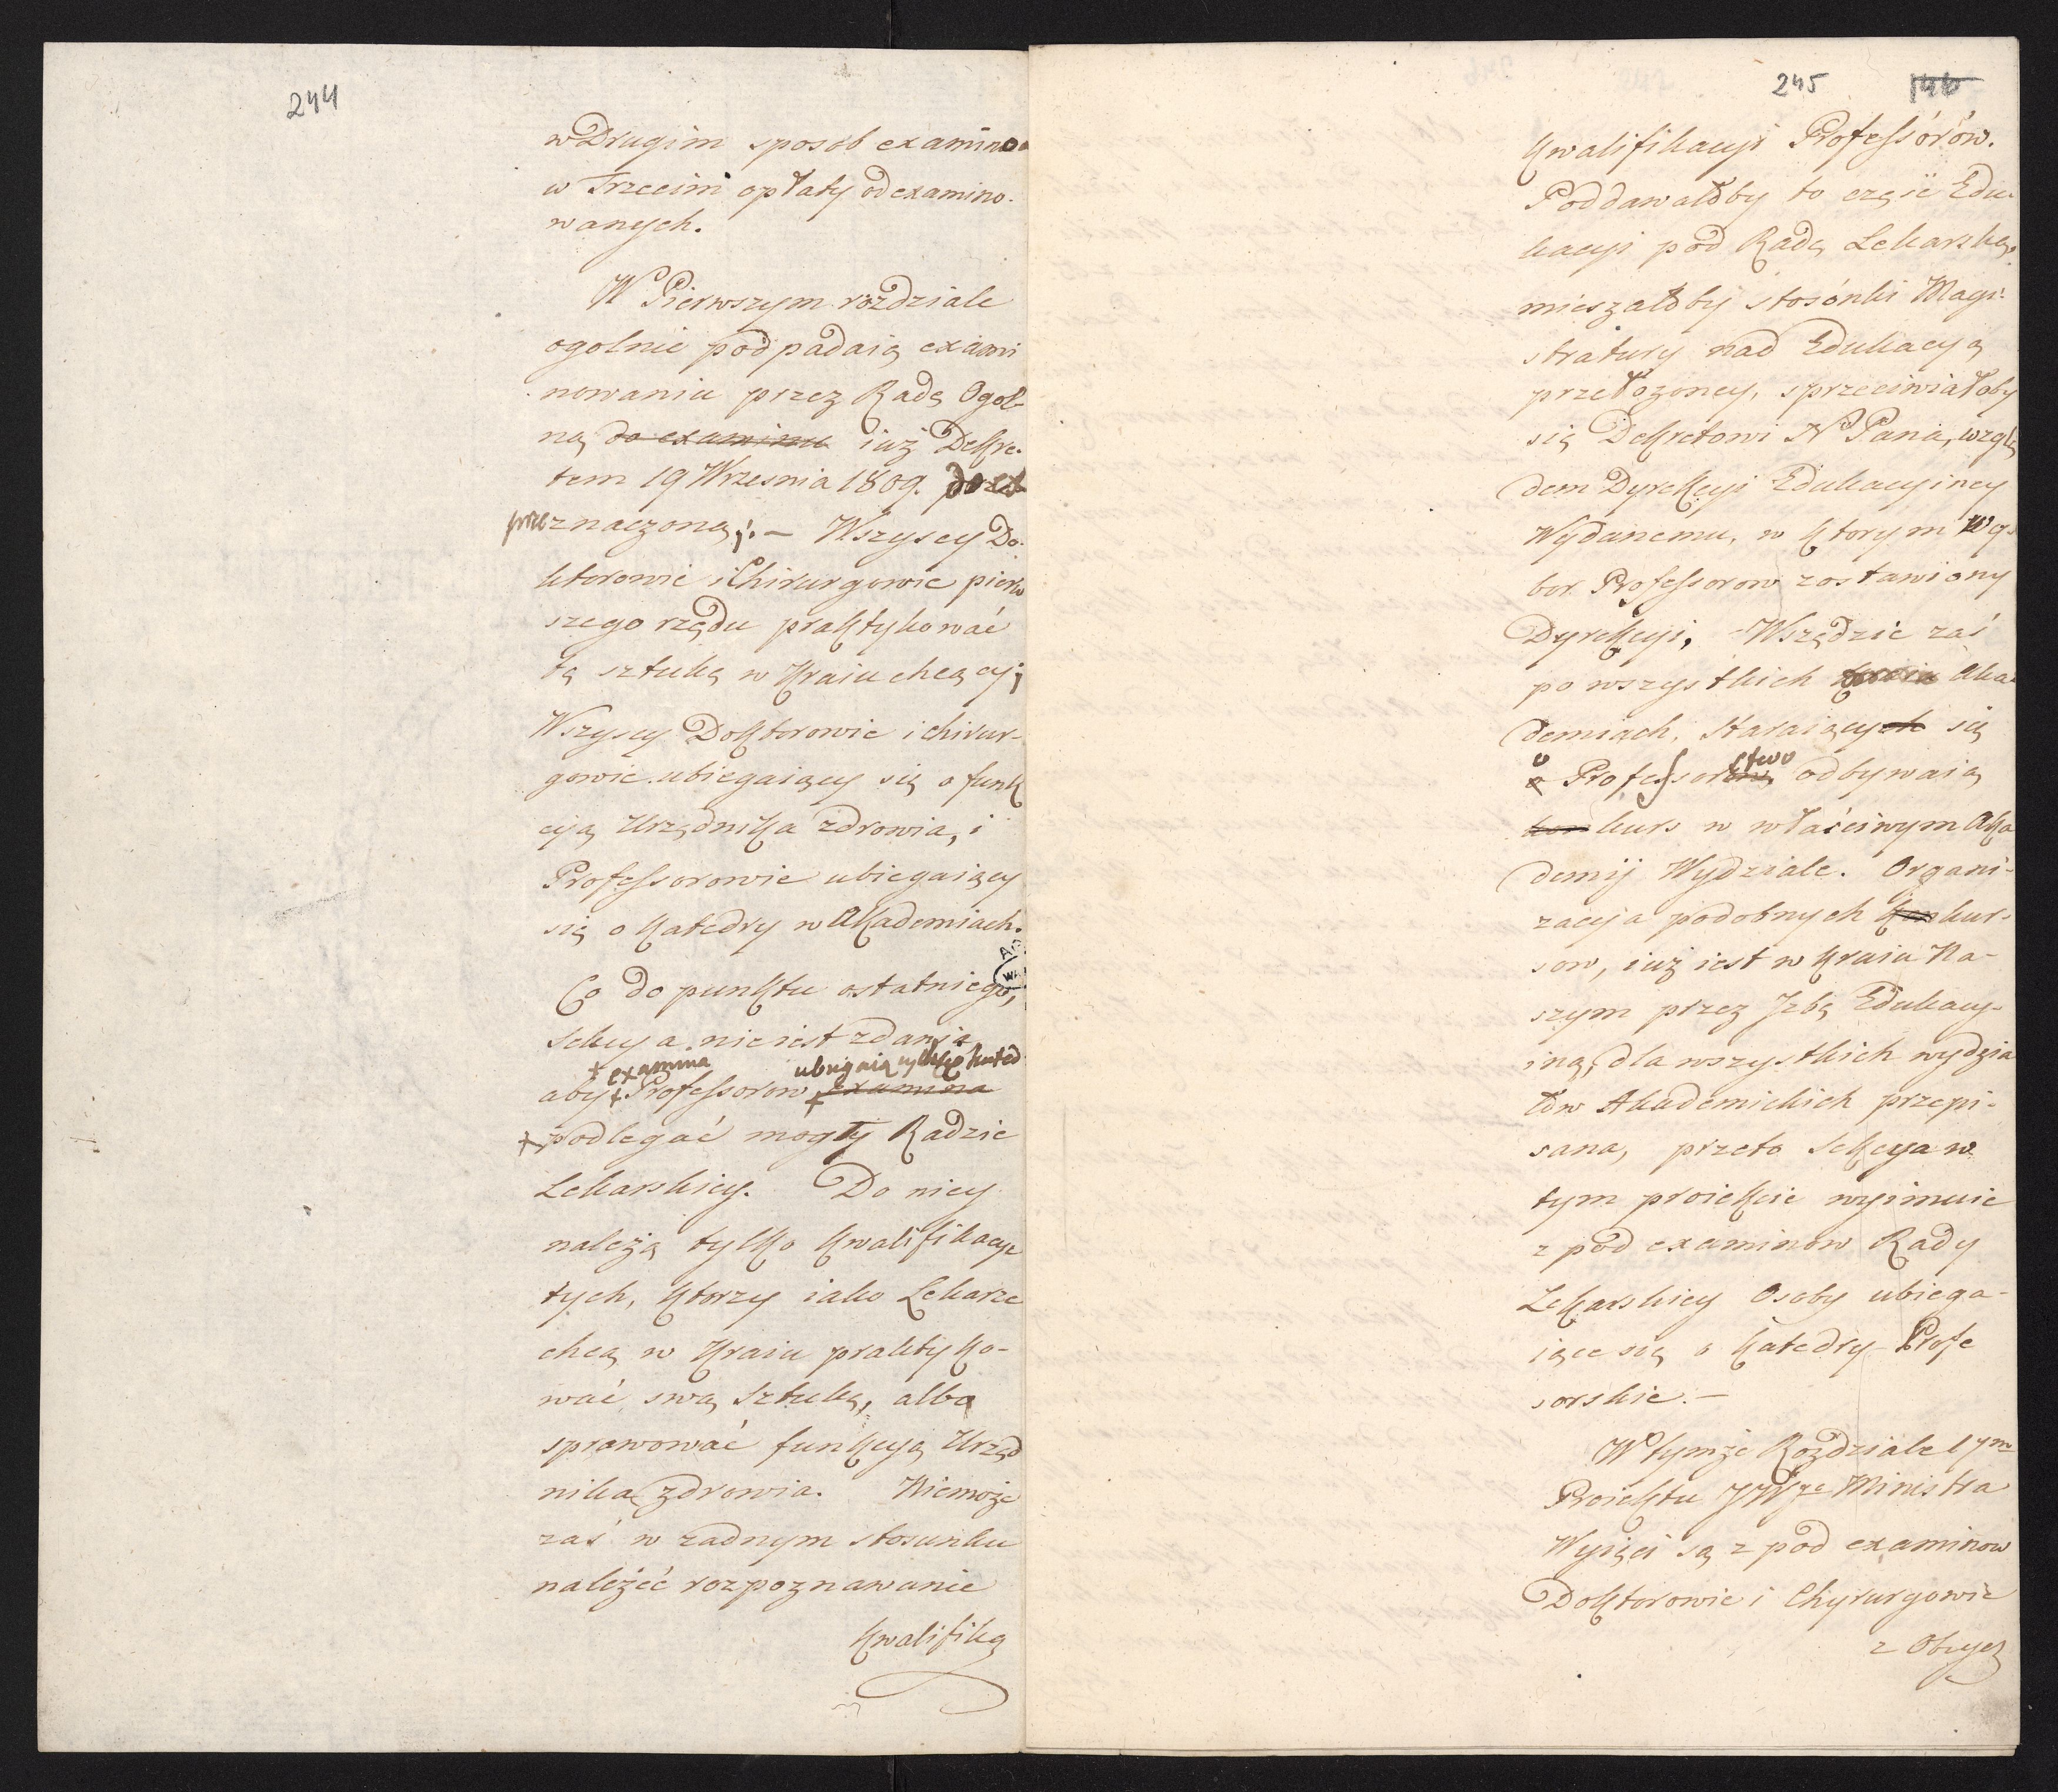 244
w Drugim sposob examino
w Trzecim opłaty od examino.
wanych.
W Pierwszym rozdziale
ogolnie podpadaią exami
nowaniu przez Radę Ogol-
ną do examinu iuż Dekre.
tem 19 Wrzesnia 1809. do ex
przeznaczoną; :– Wszyscy Do.
ktorowie i Chirurgowie pierw
szego rzędu praktykować
tę sztukę w Kraiu chcący;
Wszyscy Doktorowie i chirur-
gowie ubiegaiący się o funk
cyą Urzędnika zdrowia, i
Professorowie ubiegaiący
się o Katedry w Akademiach.
Co do punktu ostatniego,
Sekcya nie iest zdania
+ examina ubiegaiących się o Kated
aby + Professorow + examina
+ podlegać mogły Radzie
Lekarskiey. Do niey
należą tylko Kwalifikacye
tych, Ktorzy iako Lekarze
chcą w Kraiu praktyko-
wać swą Sztukę, albo
sprawować funkcyą Urzęd
nika zdrowia. Niemoże
zaś w żadnym stosunku
należeć rozpoznawanie
Kwalifika
245 146
Kwalifikacyi Professórów.
Poddawałoby to część Edu-
kacyi pod Radę Lekarską,
mieszałoby stosónki Magi-
stratury nad Edukacyą
przełożoney, sprzeciwiałoby
się Dekretowi N Pana, wzglę
dem Dyrekcyi Edukacyiney
Wydanemu, w Ktorym Wy-
bor Professorow zostawiony
Dyrekcyi. Wszędzie zaś
po wszystkich Aka-
demiach, Staraiących się
o stwo
a Professorow, odbywaią
konkurs w właściwym Aka
demij Wydziale. Organi-
zacya podobnych konkur-
sow, iuż iest w Kraiu Na-
szym przez Izbę Edukacy-
iną, dla wszystkich wydzia
łów Akademickich przepi-
sana, przeto Sekcya w
tym proiekcie wyimuie
z pod examinow Rady
Lekarskiey Osoby ubiega-
iące się o Katedry Profe
sorskie. –
W tymże Rozdziale 1ym
Proiektu JWgo Ministra
Wyięci są z pod examinow
Doktorowie i Chyrurgowie
z Obcych